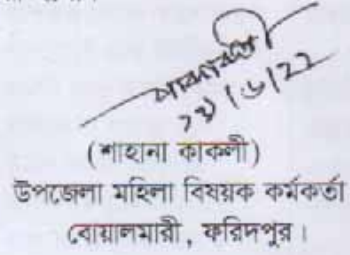 ২১/৬/22
(শাহানা কাকলী)
উপজেলা মহিলা বিষয়ক কর্মকর্তা
বোয়ালমারী, ফরিদপুর।